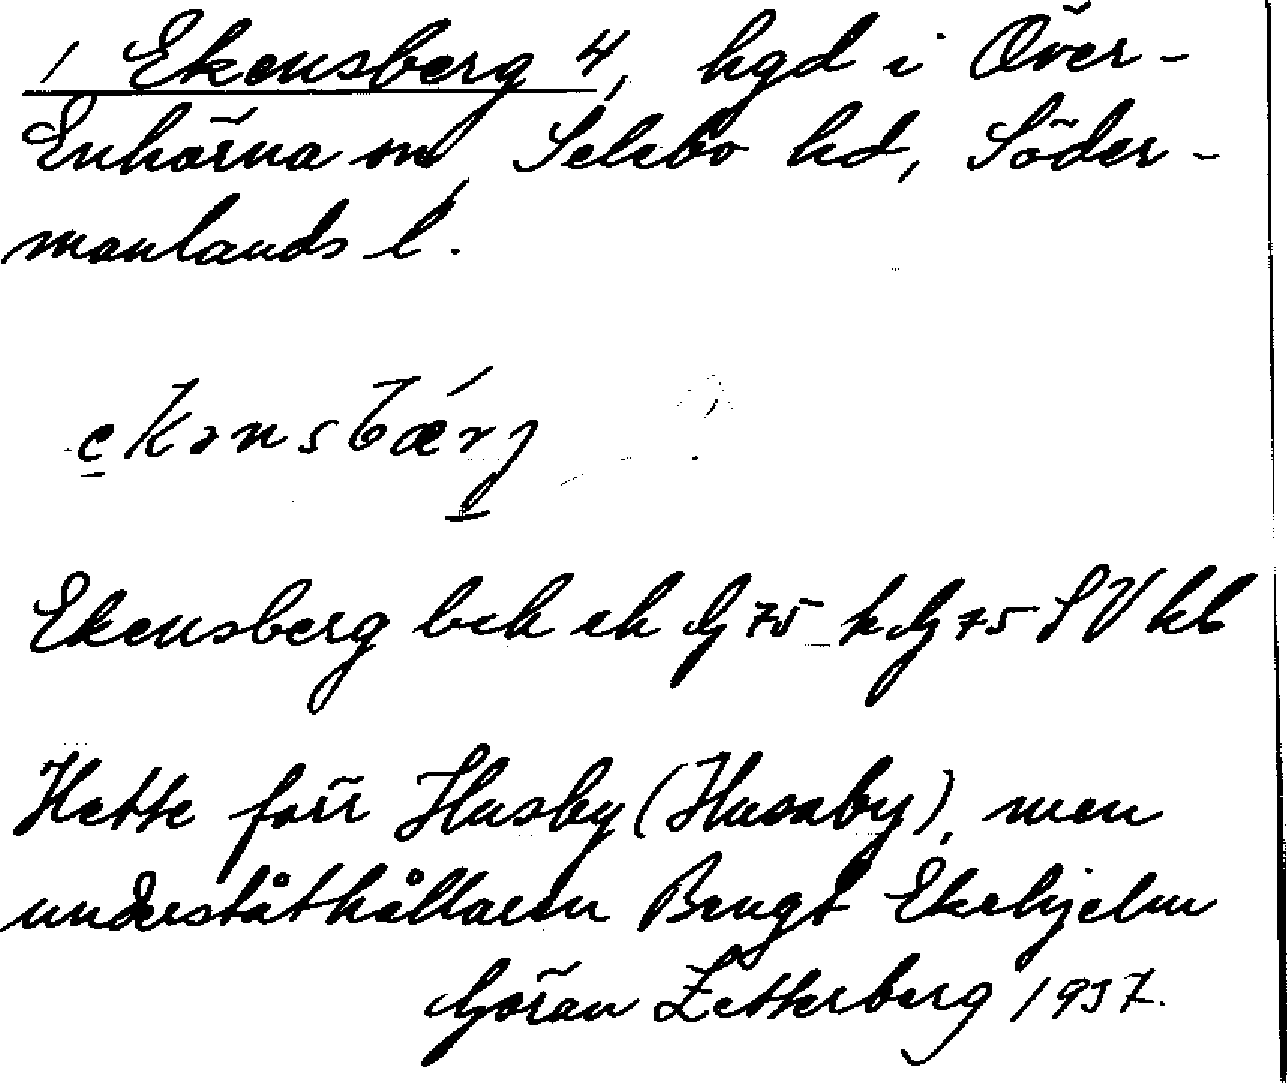 1 Ekensberg 4, hgd i Över-
Enhörna sn, Selebo hd, Söder-
manlands l.
ekənsbærj
Ekensberg bek ek G 75 k G 75 SV kb
Hette förr Husby (Husaby), men
underståthållaren Bengt Ekehjelm
Göran Zetterberg 1937.